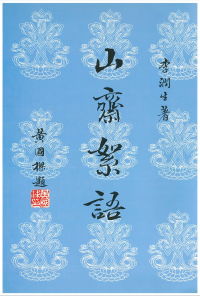 李潤生著
山齋絮語
黃國樑題